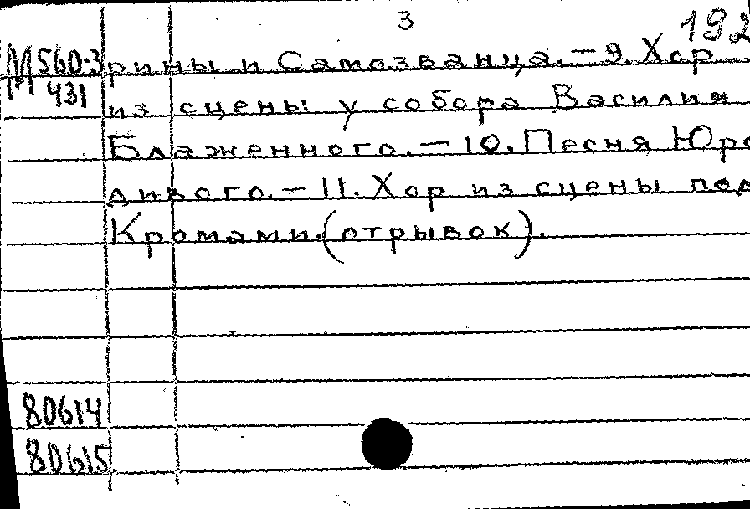 3
192
М560-3 рины и Самозванца. – 9. Хор
431 из сцены у собора Василия
Блаженного. – 10. Песня Юро
дивого. – 11. Хор из сцены под
Кромами. (отрывок).
80614
80615